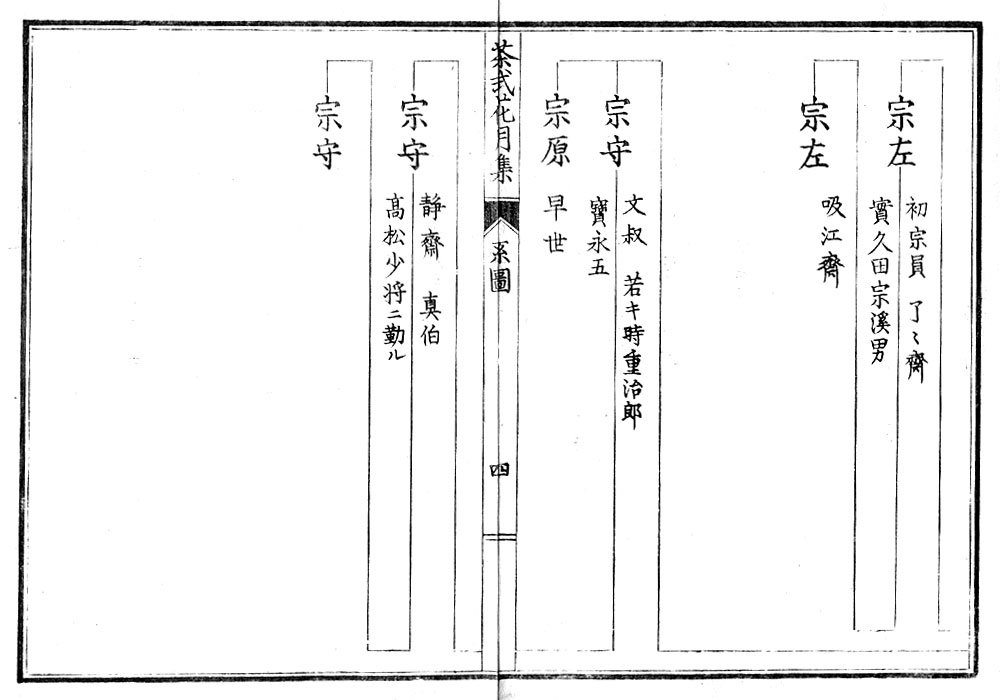 宗左
初宗員 了〻齋
實久田宗溪男
宗左
吸江齋
宗守
文叔 若キ時重治郎
寶永五
宗原
早世
茶式花月集
系圖
四
宗守
静齋 真伯
高松少将ニ勤ル
宗守